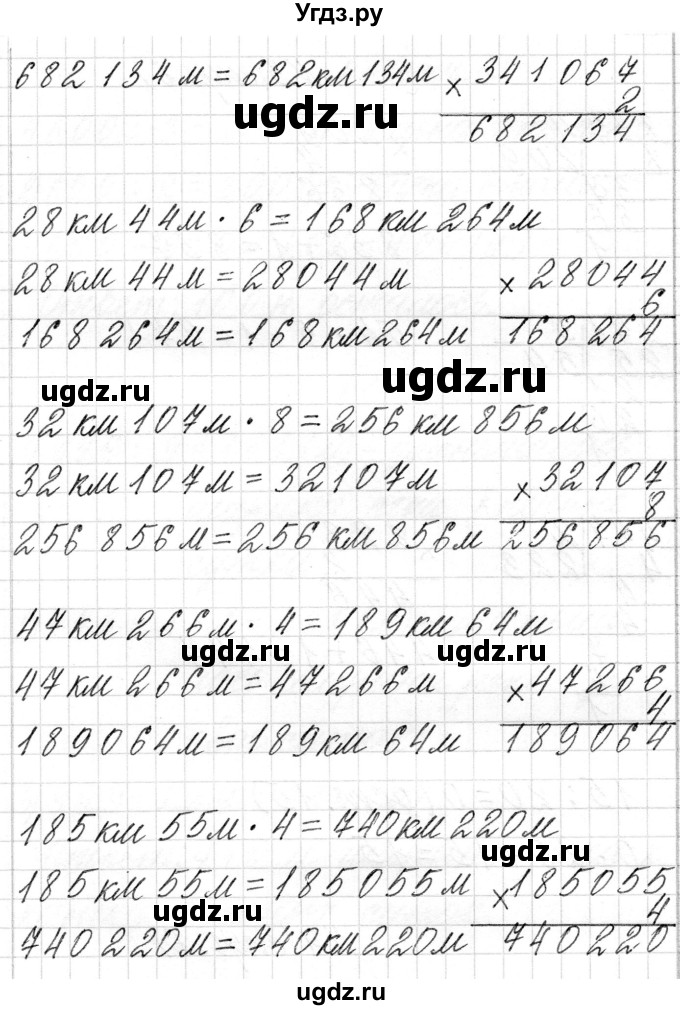 Угдз.ру
682 134 м = 682 км 134 м × 341 067
2
682 134
ugdz.ru
28 км 44 м · 6 = 168 км 264 м
28 км 44 м = 28044 м × 28044
6
168 264 м = 168 км 264 м 168 264
ugdz.ru ugdz.ru
32 км 107 м · 8 = 256 км 856 м
32 км 107 м = 32107 м × 32107
8
256 856 м = 256 км 856 м 256 856
47 км 266 м · 4 = 189 км 64 м
ugdz.ru ugdz.ru
47 км 266 м = 47266 м × 47266
4
189064 м = 189 км 64 м 189064
185 км 55 м · 4 = 740 км 220 м
ugdz.ru
185 км 55 м = 185055 м × 185055
4
ugdz.ru
740 220 м = 740 км 220 м 740220
ugdz.ru